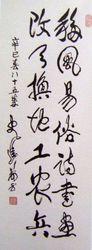 移風易俗詩書畫
改天換地工农兵
辛巳 八十五叟